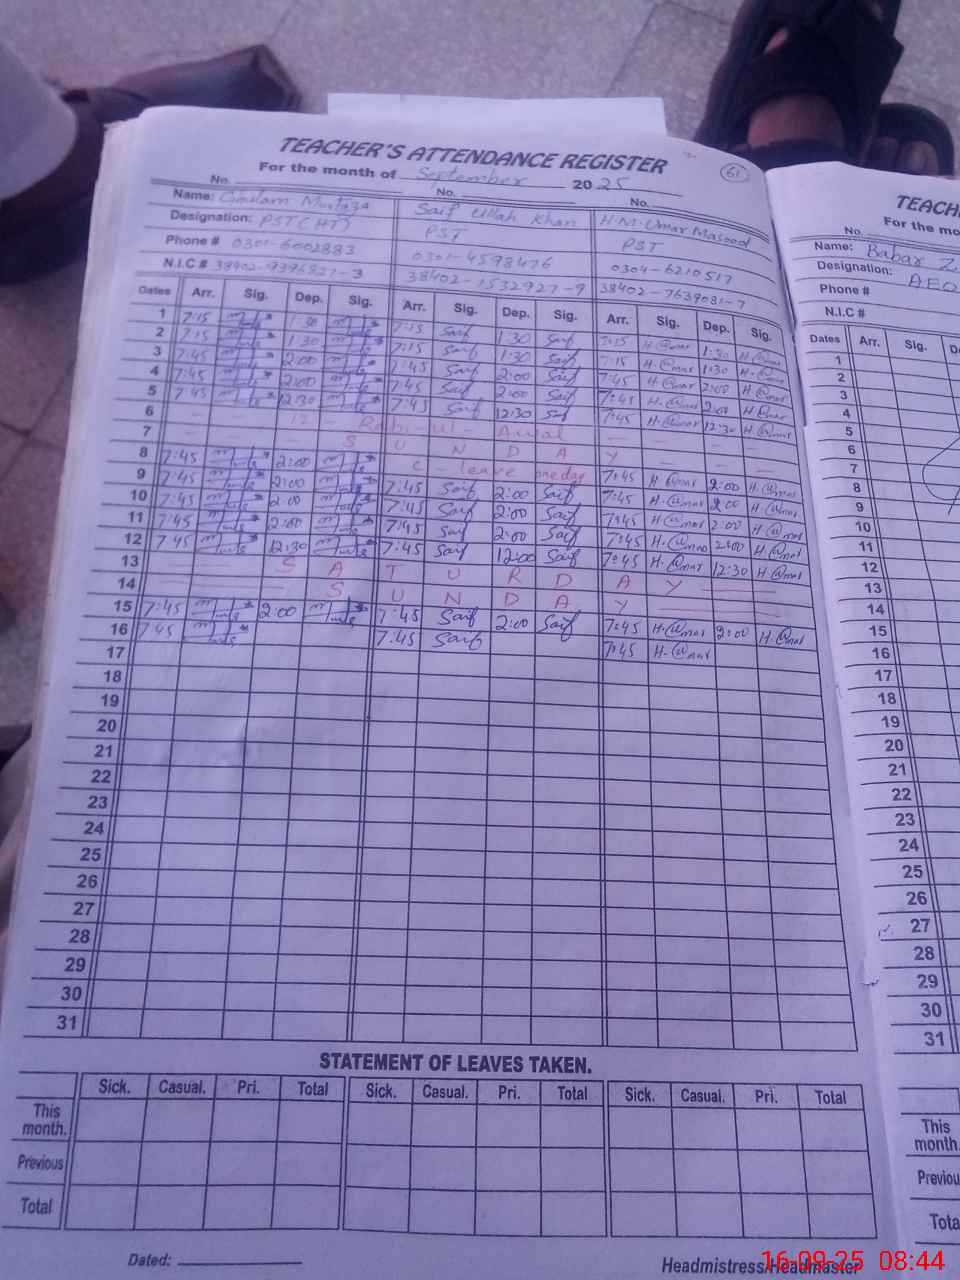 TEACHER'S ATTENDANCE REGISTER
61
For the month of September 2025
No. No. No.
Name: Ghulam Murtaza Saif Ullah Khan H.M. Umar Masood
Designation: PST (HT) PST PST
Phone # 0301-6002883 0301-4598476 0304-6210517
N.I.C # 38402-9396827-3 38402-1532927-9 38402-7639081-7
Dates Arr. Sig. Dep. Sig. Arr. Sig. Dep. Sig. Arr. Sig. Dep. Sig.
1 7:15 1:30 7:15 Saif 1:30 Saif 7:15 1:30
2 7:15 1:30 7:15 Saif 1:30 Saif 7:15 1:30
3 7:45 2:00 7:45 Saif 2:00 Saif 7:45 2:00
4 7:45 2:00 7:45 Saif 2:00 Saif 7:45 2:00
5 7:45 12:30 7:45 Saif 12:30 Saif 7:45 12:30
6 12 - Rabi-ul-Awal
7 S U N D A Y
8 7:45 2:00 C - leave one day 7:45 2:00
9 7:45 2:00 7:45 Saif 2:00 Saif 7:45 2:00
10 7:45 2:00 7:45 Saif 2:00 Saif 7:45 2:00
11 7:45 2:00 7:45 Saif 2:00 Saif 7:45 2:00
12 7:45 12:30 7:45 Saif 12:00 Saif 7:45 12:30
13 S A T U R D A Y
14 S U N D A Y
15 7:45 2:00 7:45 Saif 2:00 Saif 7:45 2:00
16 7:45 7:45 Saif 7:45
17
18
19
20
21
22
23
24
25
26
27
28
29
30
31
STATEMENT OF LEAVES TAKEN.
Sick. Casual. Pri. Total Sick. Casual. Pri. Total Sick. Casual. Pri. Total
This month.
Previous
Total
Dated: Headmistress/Headmaster
TEACH
For the mo
No.
Name: Babar Z.
Designation: AEO
Phone #
N.I.C #
Dates Arr. Sig. De
1
2
3
4
5
6
7
8
9
10
11
12
13
14
15
16
17
18
19
20
21
22
23
24
25
26
27
28
29
30
31
This
month.
Previou
Tota
16-09-25 08:44